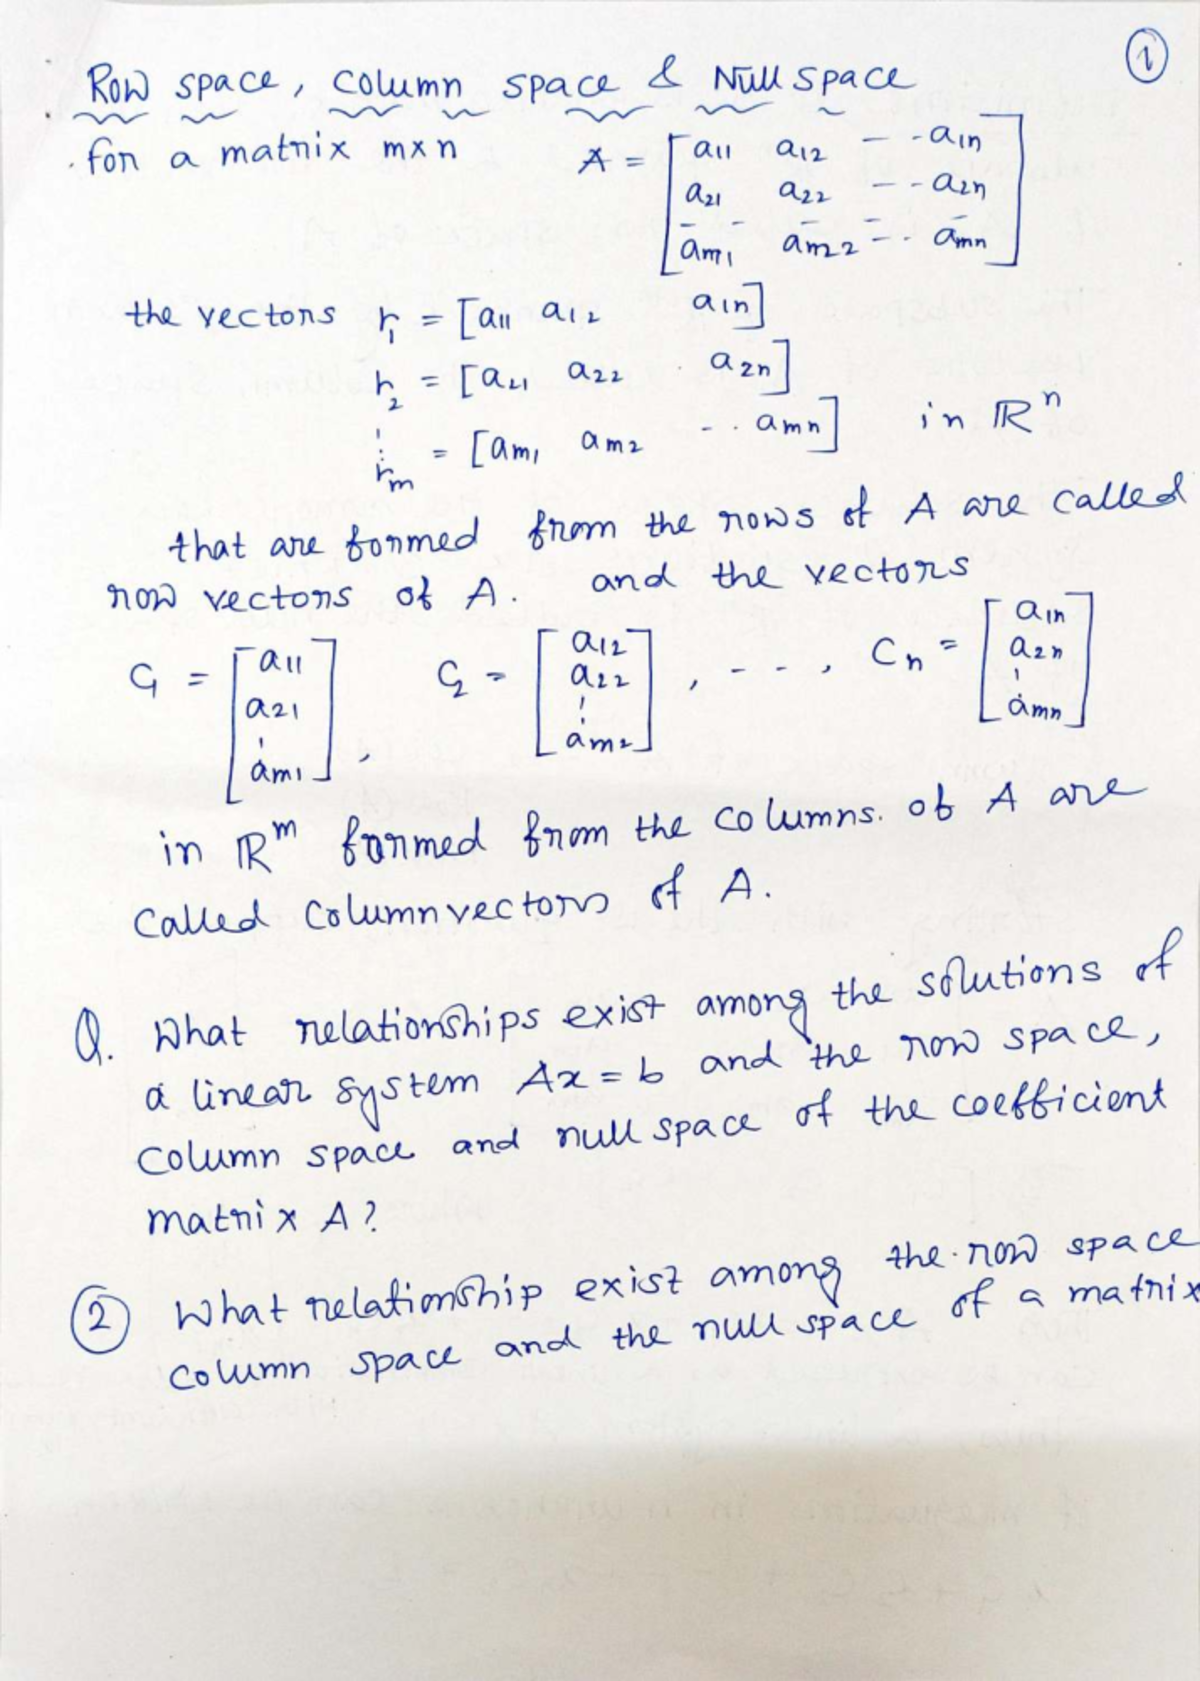 1
Row space, column space & Null space
for a matrix m×n A = [a11 a12 -- a1n
a21 a22 -- a2n
- - - - - -
am1 am2 -- amn]
the vectors r1 = [a11 a12 a1n]
r2 = [a21 a22 . a2n]
⋮
rm = [am1 am2 -.. amn] in ℝ^n
that are formed from the rows of A are called
row vectors of A. and the vectors
C1 = [a11 a21 ⋮ am1], C2 = [a12 a22 ⋮ am2], - - -, Cn = [a1n a2n ⋮ amn]
in ℝ^m formed from the columns. of A are
called column vectors of A.
Q. What relationships exist among the solutions of
a linear system Ax = b and the row space,
column space and null space of the coefficient
matrix A?
2 What relationship exist among the row space
column space and the null space of a matrix